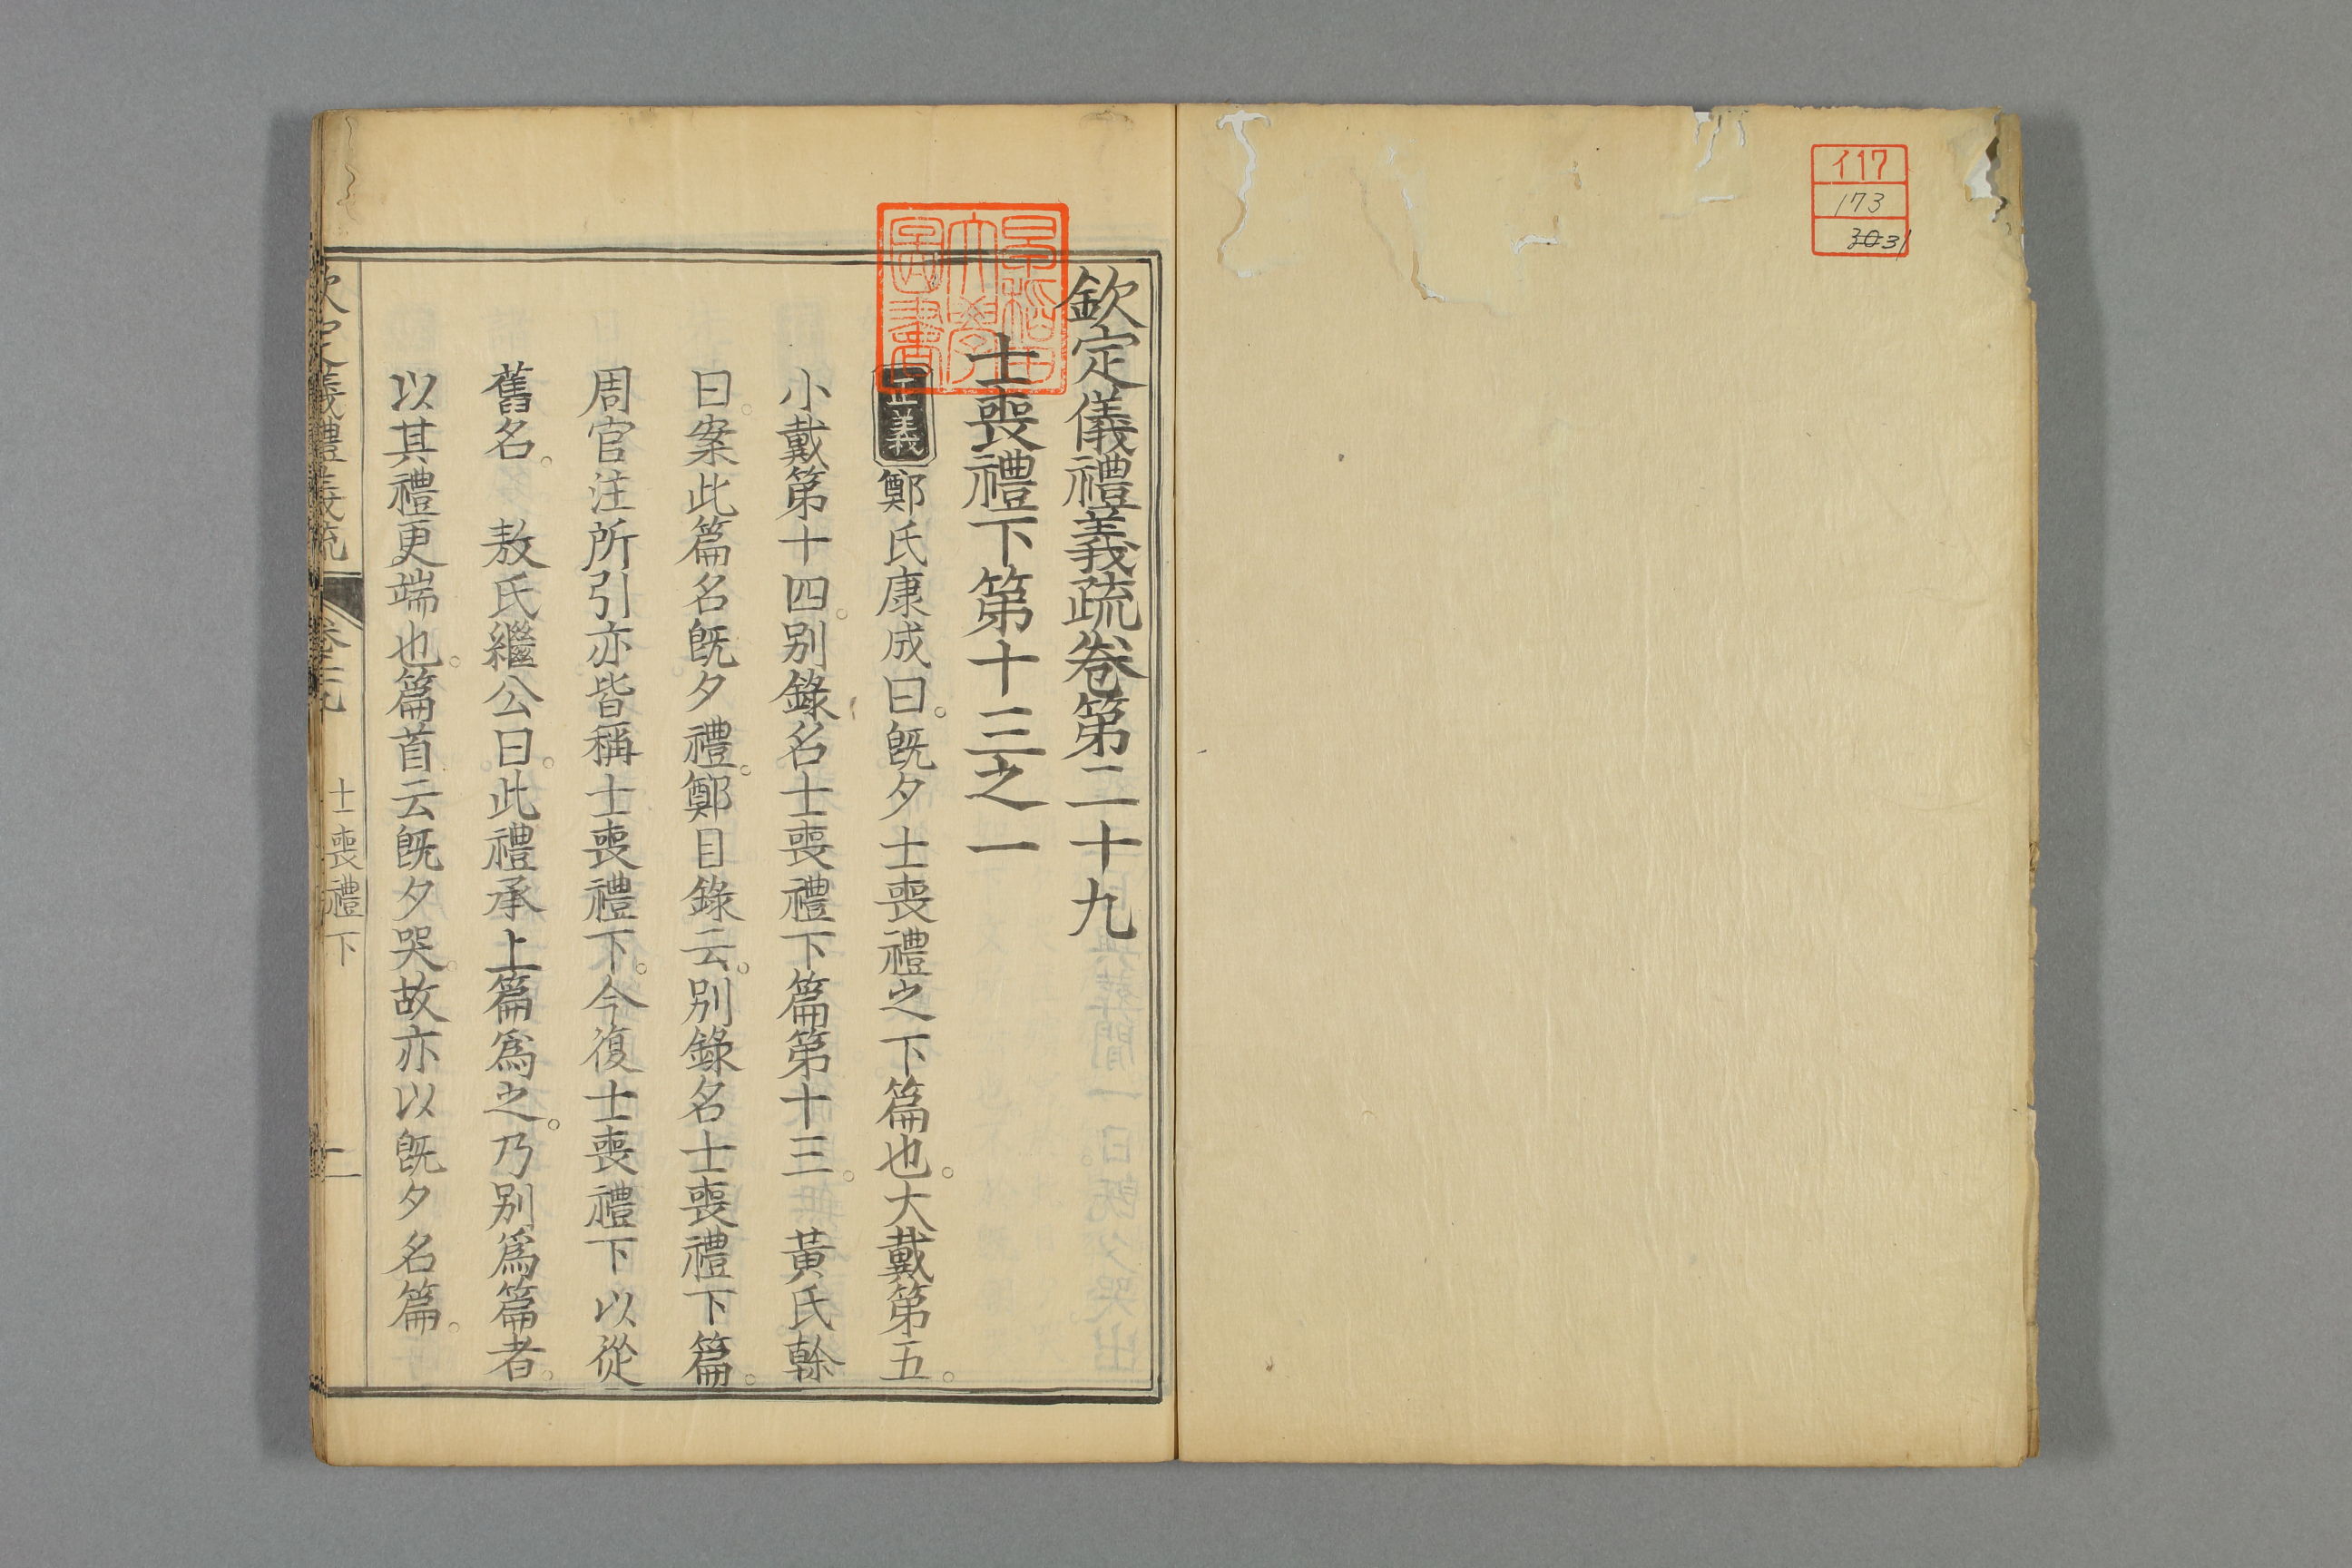 イ17
173
3031
欽定儀禮義疏卷第二十九
士喪禮下第十三之一
正義鄭氏康成曰。旣夕士喪禮之下篇也。大戴第五。
小戴第十四。别錄名士喪禮下篇第十三。 黃氏榦
曰。案此篇名旣夕禮。鄭目錄云。别錄名士喪禮下篇。
周官注所引亦皆稱士喪禮下。今復士喪禮下以從
舊名。 敖氏繼公曰。此禮承上篇爲之。乃别爲篇者。
以其禮更端也。篇首云旣夕哭。故亦以旣夕名篇。
欽定儀禮義疏 卷二十九 士喪禮下 一
早稻田大學圖書